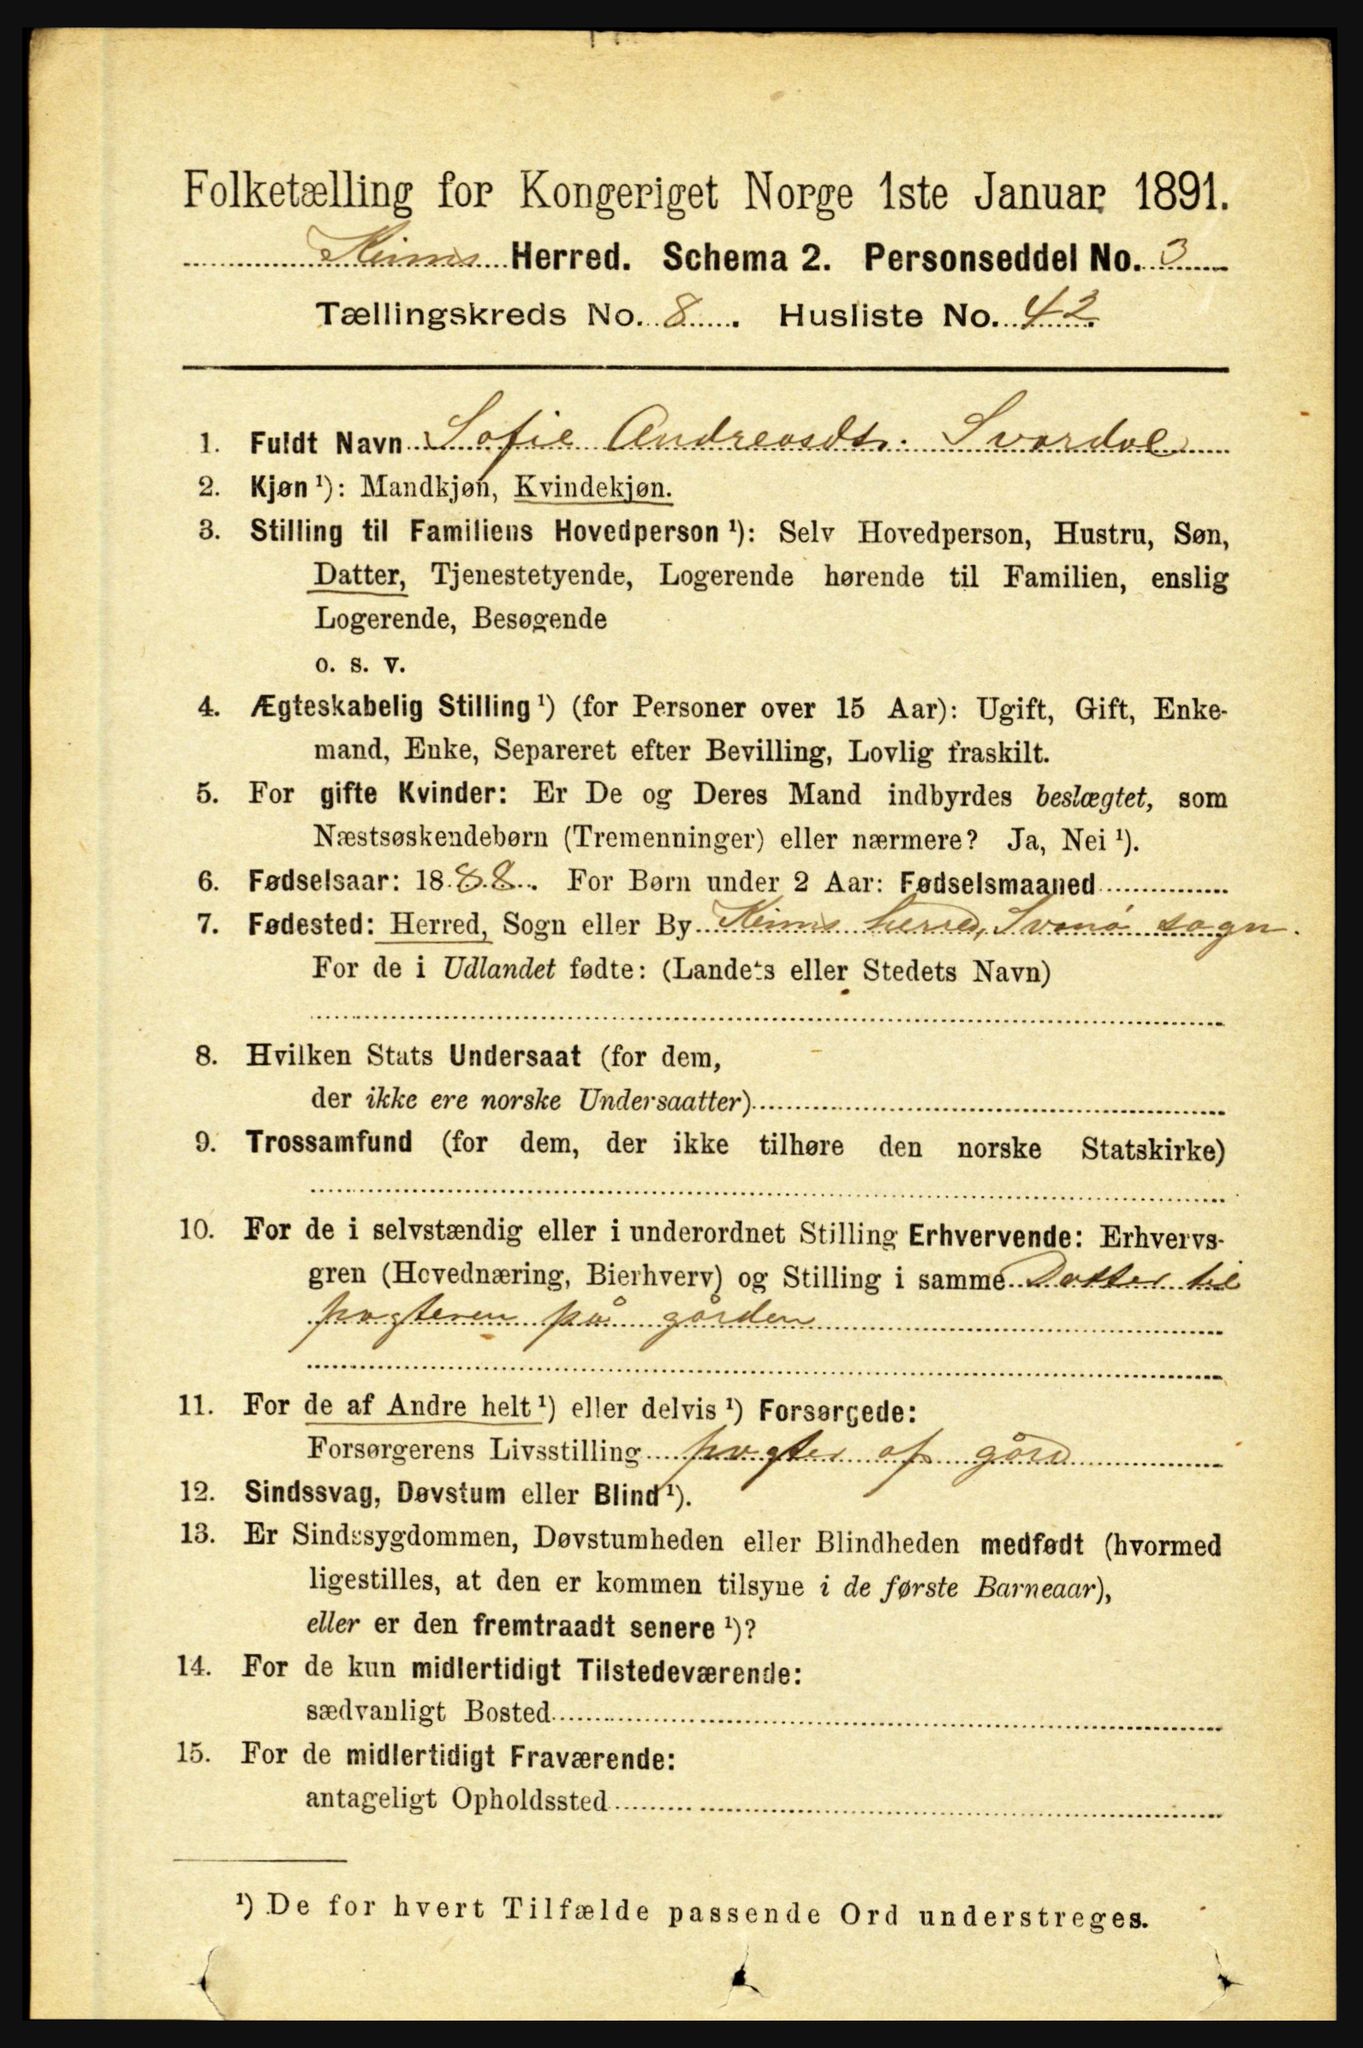 Folketælling for Kongeriget Norge 1ste Januar 1891.
Kinns Herred. Schema 2. Personseddel No. 3
Tællingskreds No. 8. Husliste No. 42.
1. Fuldt Navn Sofie Andreasdtr. Svardal
2. Kjøn ¹): Mandkjøn, Kvindekjøn.
3. Stilling til Familiens Hovedperson ¹): Selv Hovedperson, Hustru, Søn,
Datter, Tjenestetyende, Logerende hørende til Familien, enslig
Logerende, Besøgende
o. s. v.
4. Ægteskabelig Stilling ¹) (for Personer over 15 Aar): Ugift, Gift, Enke-
mand, Enke, Separeret efter Bevilling, Lovlig fraskilt.
5. For gifte Kvinder: Er De og Deres Mand indbyrdes beslægtet, som
Næstsøskendebørn (Tremenninger) eller nærmere? Ja, Nei ¹).
6. Fødselsaar: 1888. For Børn under 2 Aar: Fødselsmaaned
7. Fødested: Herred, Sogn eller By Kinns herred, Svanø sogn.
For de i Udlandet fødte: (Landets eller Stedets Navn)
8. Hvilken Stats Undersaat (for dem,
der ikke ere norske Undersaatter)
9. Trossamfund (for dem, der ikke tilhøre den norske Statskirke)
10. For de i selvstændig eller i underordnet Stilling Erhvervende: Erhvervs-
gren (Hovednæring, Bierhverv) og Stilling i samme Datter til
pagteren på gården
11. For de af Andre helt ¹) eller delvis ¹) Forsørgede:
Forsørgerens Livsstilling pagter af gård
12. Sindssvag, Døvstum eller Blind ¹).
13. Er Sindssygdommen, Døvstumheden eller Blindheden medfødt (hvormed
ligestilles, at den er kommen tilsyne i de første Barneaar),
eller er den fremtraadt senere ¹)?
14. For de kun midlertidigt Tilstedeværende:
sædvanligt Bosted
15. For de midlertidigt Fraværende:
antageligt Opholdssted
¹) De for hvert Tilfælde passende Ord understreges.